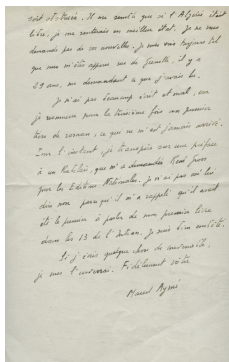 soit obstruée. Il me semble que si l'Algérie était
libre, je me sentirais en meilleur état. Je ne vous
demande pas de vos nouvelles. Je vous vois toujours tel
que vous m'êtes apparu rue de Grenelle, il y a
29 ans, me demandant ce que j'avais lu.
Je n'ai pas beaucoup écrit et mal, car
je recommence pour la troisième fois un premier
tiers de roman, ce qui ne m'est jamais arrivé.
Pour l'instant, je transpire sur une préface
à un que m'a demandée René
pour les Editions Nationales. Je n'ai pas osé lui
dire non parce qu'il m'a rappelé qu'il avait
été le premier à parler de mon premier livre
dans les 13 de l'Intran. Je suis bien embêté.
Si j'écris quelque chose de
je vous l'enverrai. Fidèlement vôtre
Marcel Aymé